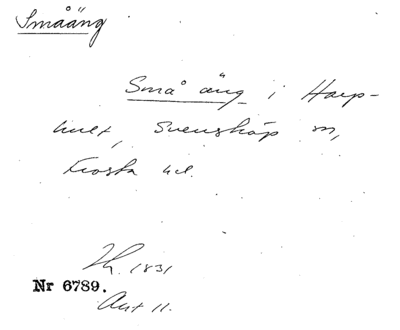 Småäng
Små äng i Harp-
hult, Svensköp sn,
Frosta hd.
1831
Nr 6789.
Akt 11.